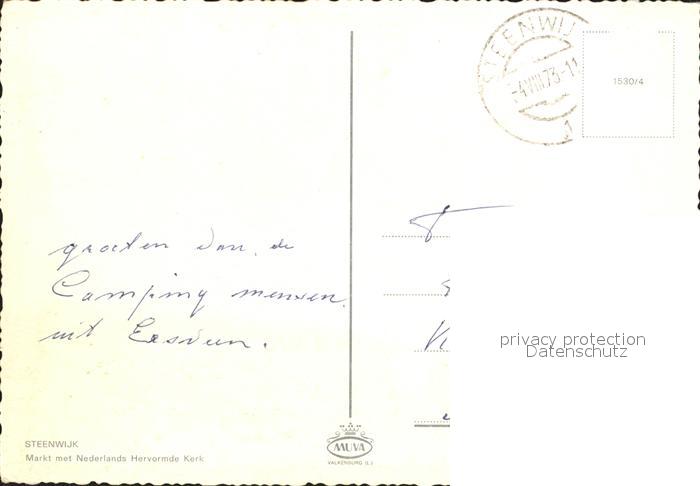 STEENWIJK
-4.VIII.73-11
1530/4
groeten van de
Camping mensen
uit
privacy protection
Datenschutz
STEENWIJK
Markt met Nederlands Hervormde Kerk
MUVA
VALKENBURG (L.)